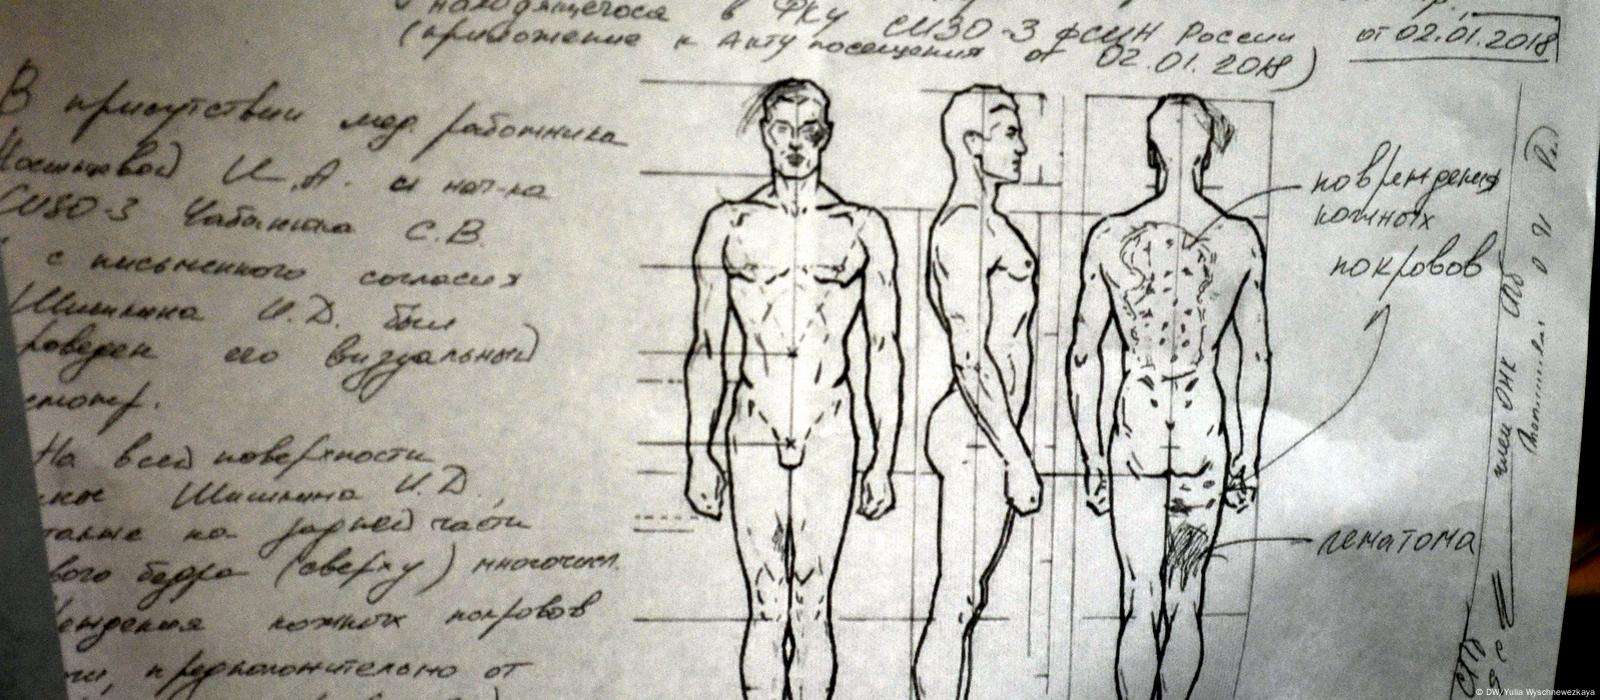 находящегося в ФКУ СИЗО-3 ФСИН России
(приложение к Акту посещения от 02.01.2018)
от 02.01.2018
В присутствии мед. работника
И.А. и нач-ка
СИЗО-3 С.В.
с письменного согласия
Шишкина И.Д. был
его визуальный
На всей поверхности
Шишкина И.Д.,
также на задней части
бедра (сверху) многочисл.
кожных покровов
предположительно от
повреждения
кожных
покровов
гематома
член ОНК
© DW/Yulia Wyschnewezkaya